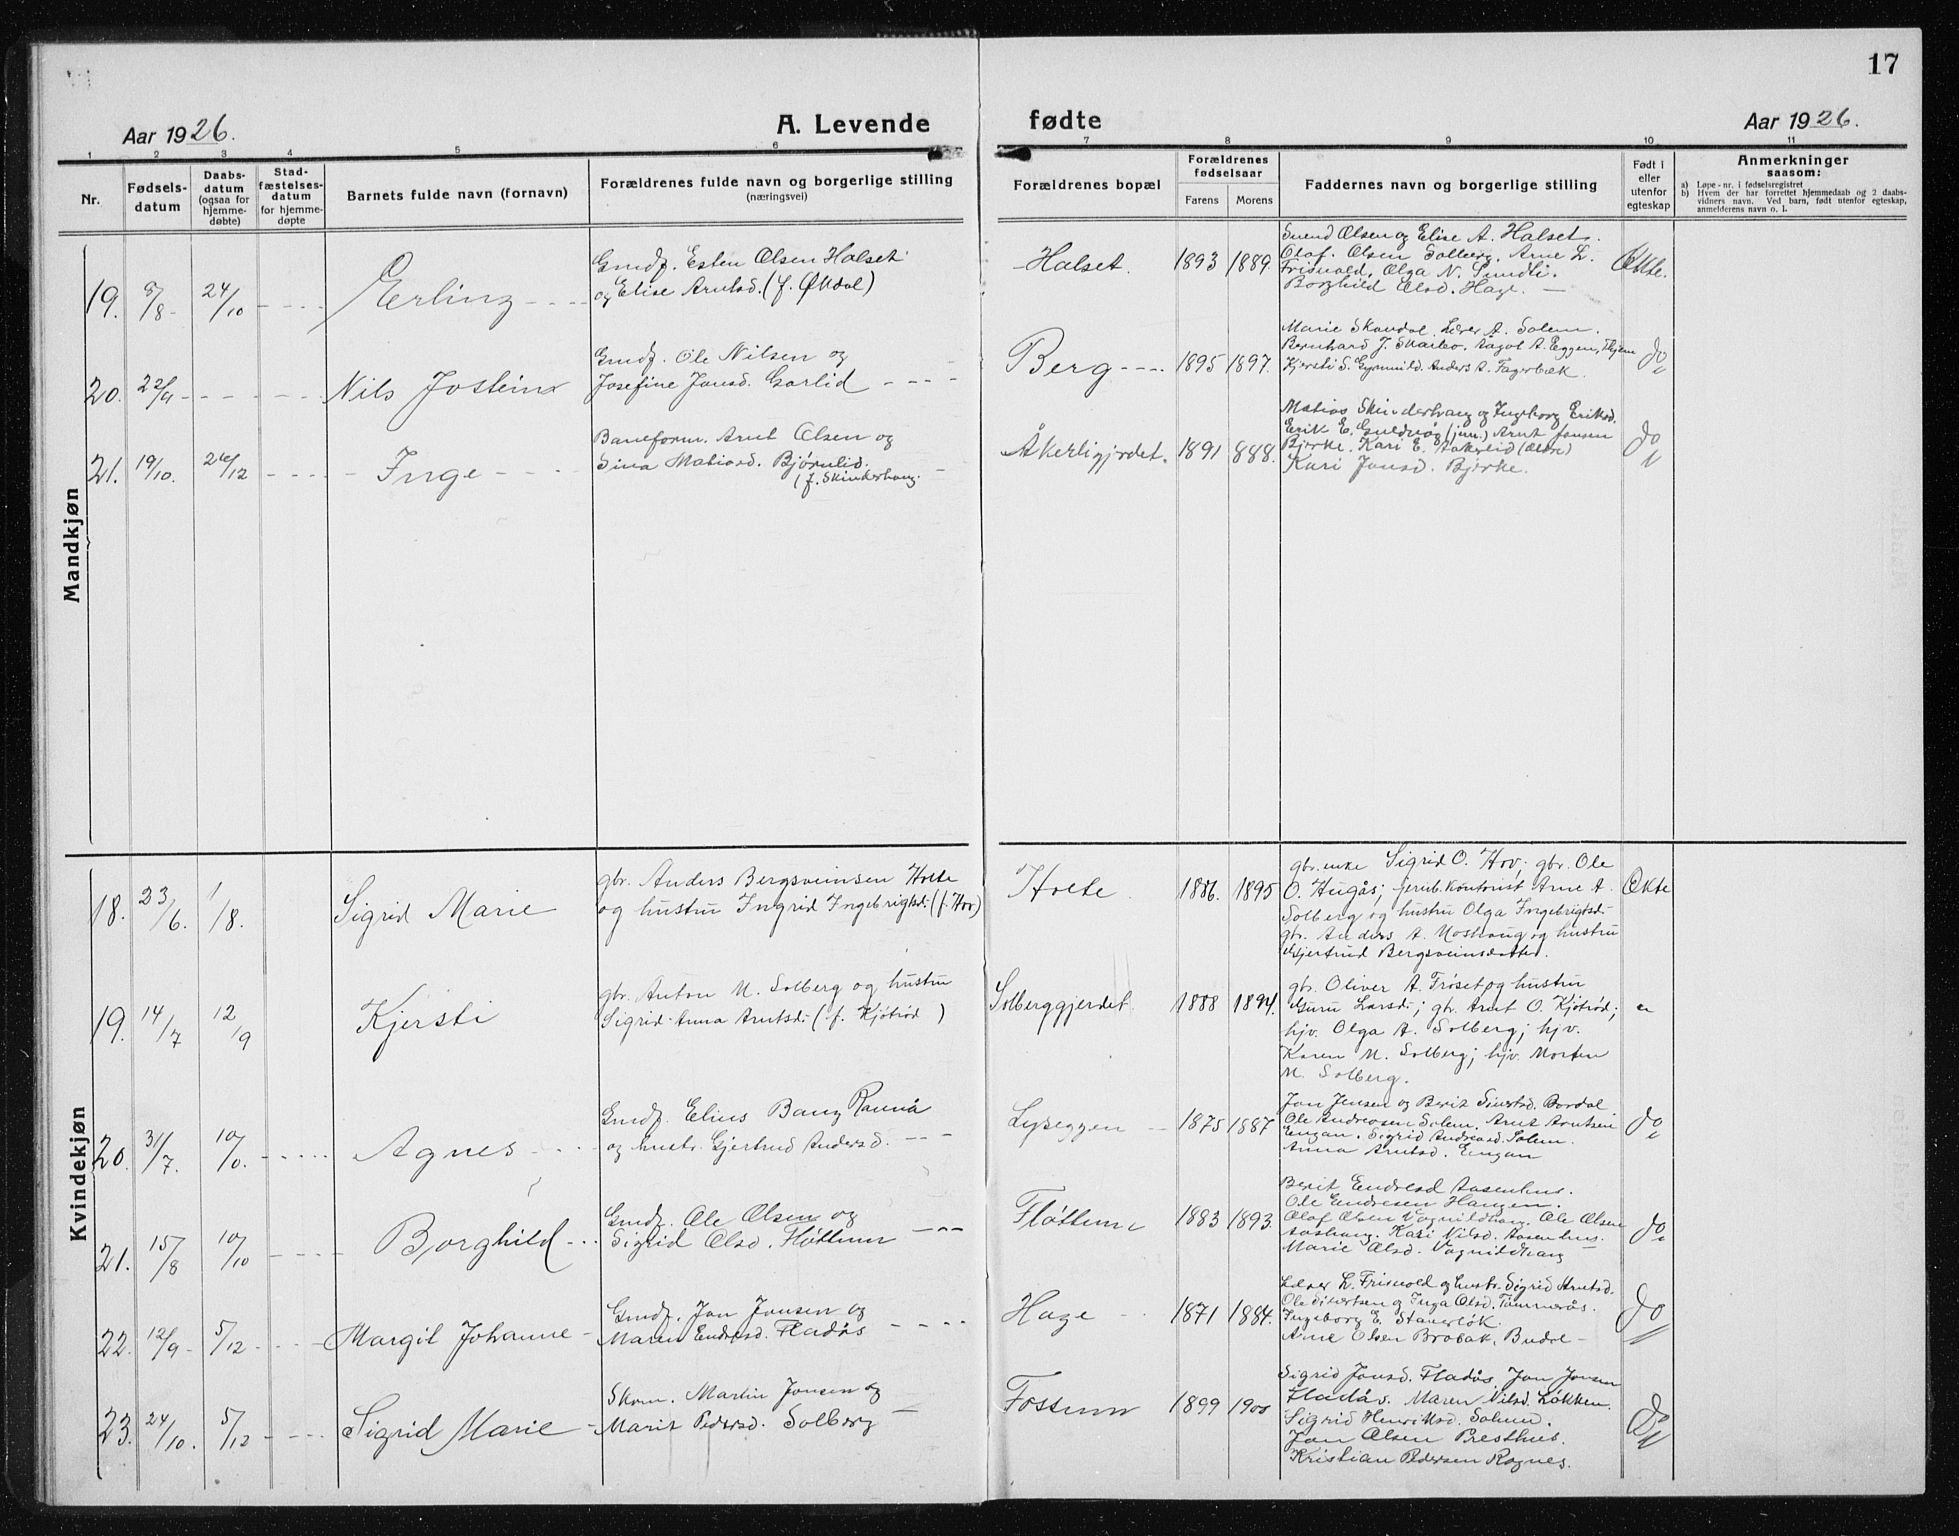 17
Aar 1926. A. Levende fødte Aar 1926.
1 2 3 4 5 6 7 8 9 10 11
Nr. Fødsels-datum Daabs-datum (ogsaa for hjemme-døbte) Stad-fæstelses-datum for hjemme-døpte Barnets fulde navn (fornavn) Forældrenes fulde navn og borgerlige stilling (næringsvei) Forældrenes bopæl Forældrenes fødselsaar Farens Morens Faddernes navn og borgerlige stilling Født i eller utenfor egteskap Anmerkninger saasom:
a) Løpe-nr. i fødselsregistret
b) Hvem der har forrettet hjemmedaab og 2 daabs-vidners navn. Ved barn, født utenfor egteskap, anmelderens navn o. l.
Mandkjøn
19. 5/8 - 24/10 - - - - Erling - - - -
Gmdf. Esten Olsen Halset
og Elise Arntsd. (f. Økdal)
Halset. 1893 1889.
Svend Olsen og Elise A. Halset.
Olaf Olsen Solberg. Arne L.
Frisvold, Olga N. Sundli.
Borghild Olsd. Hage. —
Ekte.
20. 22/9 - - - - - - Nils Jostein
Gmdf. Ole Nilsen og
Josefine Jonsd. Garlid - - - -
Berg - - - - 1895 1897.
Marie Skandal. A. Solem.
Bernhard J. Skarbo. Aagot A. Eggen,
Kjersti S. Anders A. Fagerbæk.
do
21. 19/10. 26/12 - - - - Inge - - - -
Baneform. Arnt Olsen og
Sina Matiasd. Bjørnlid.
(f. Skinderhaug.
Åkerligjerdet. 1891 888.
Matias Skinderhaug og Ingeborg Eriksd.
Erik E. (jun.) Arnt Jonsen
Bjerke. Kari E. (Ældre)
Kari Jonsd. Bjerke.
do
Kvindekjøn
18. 23/6. 1/8. Sigrid Marie
gbr. Anders Bergsveinsen Holte
og hustru Ingrid Ingebrigtsd. (f. Hov)
Holte. 1886. 1895
gbr. enke Sigrid O. Hov; gbr. Ole
O. Hugås; jernb. kontorist Arne A.
Solberg og hustru Olga Ingebrigtsd.
gbr. Anders A. Moshaug og hustru
Gjertrud Bergsveinsdatter.
Ekte
19. 14/7 12/9 Kjersti
gbr. Anton M. Solberg og hustru
Sigrid Anna Arntsd. (f. Kjøtrød)
Solberggjerdet. 1888 1894.
gbr. Oliver A. Frøset og hustru
Guru Larsd.; gbr. Arnt O. Kjøtrød;
hjv. Olga A. Solberg; hjv.
Karen M. Solberg; hjv. Morten
M. Solberg.
20. 31/7. 10/0. - - - - - Agnes - - - -
Gmdf. Elius Bang Rannå
og hustr. Gjertrud Andersd. - - -
Lyseggen - 1875 1887
Jon Jensen og Berit Bordal
Ole Andreasen Solem. Arnt Arntsen
Engan. Sigrid Andreasd. Solem.
Anna Arntsd. Engan
do
21. 15/8 10/10 - - - - Borghild - - -
Gmdf. Ole Olsen og
Sigrid Olsd. Fløttum - - -
Fløttum 1883 1893.
Berit Endresd Aasenhus.
Ole Endresen Haugen.
Olaf Olsen Vagnildhaug. Ole Olsen
Kari Nilsd. Aasenhus.
Marie Olsd. Vagnildhaug
do
22. 12/9 - 5/12 - - - - Margit Johanne -
Gmdf. Jon Jonsen og
Maren Endresd. Fladås - - - -
Hage - 1871 1884.
L. Frisvold og hustr. Sigrid Arntsd.
Ole og Inga Olsd. Tømmerås.
Ingeborg E. Stavørløk.
Arne Olsen Brobak. Budal -
do
23. 24/10. 5/12 - - - - Sigrid Marie -
Skom. Martin Jonsen og
Marit Pedersd. Solberg -
Fossum 1899 1900
Sigrid Jonsd. Fladås. Jon Jonsen
Fladås. Maren Nilsd. Løkken.
Sigrid Henriksd. Solem.
Jon Olsen Presthus.
Kristian Pedersen Rognes.
do